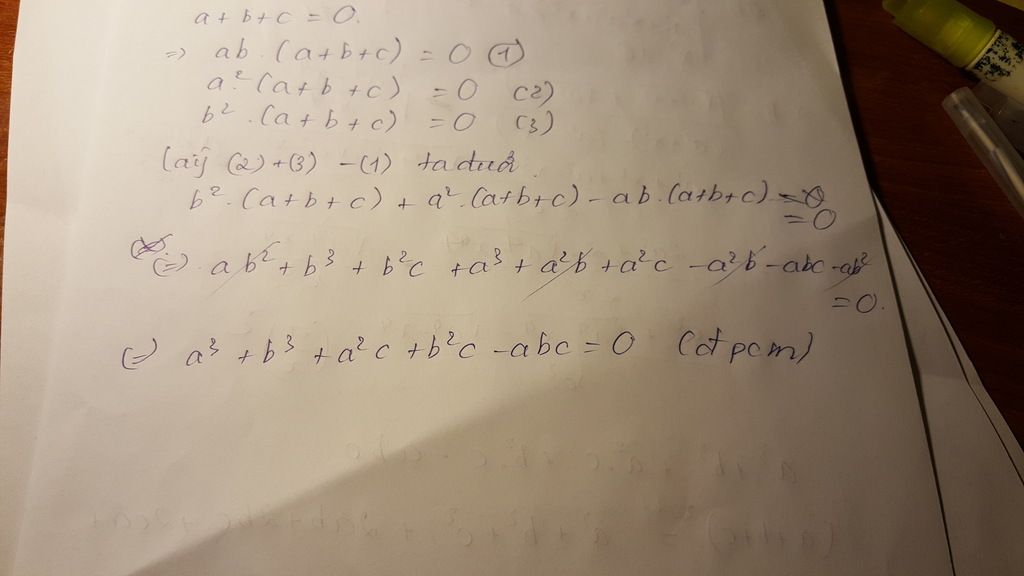 a + b + c = 0.
=> ab . (a + b + c) = 0 (1)
a² . (a + b + c) = 0 (2)
b² . (a + b + c) = 0 (3)
Lấy (2) + (3) - (1) ta được
b² . (a + b + c) + a² . (a + b + c) - ab . (a + b + c)
= 0
(=) ab² + b³ + b²c + a³ + a²b + a²c - a²b - abc - ab²
= 0.
(=) a³ + b³ + a²c + b²c - abc = 0 (đpcm)